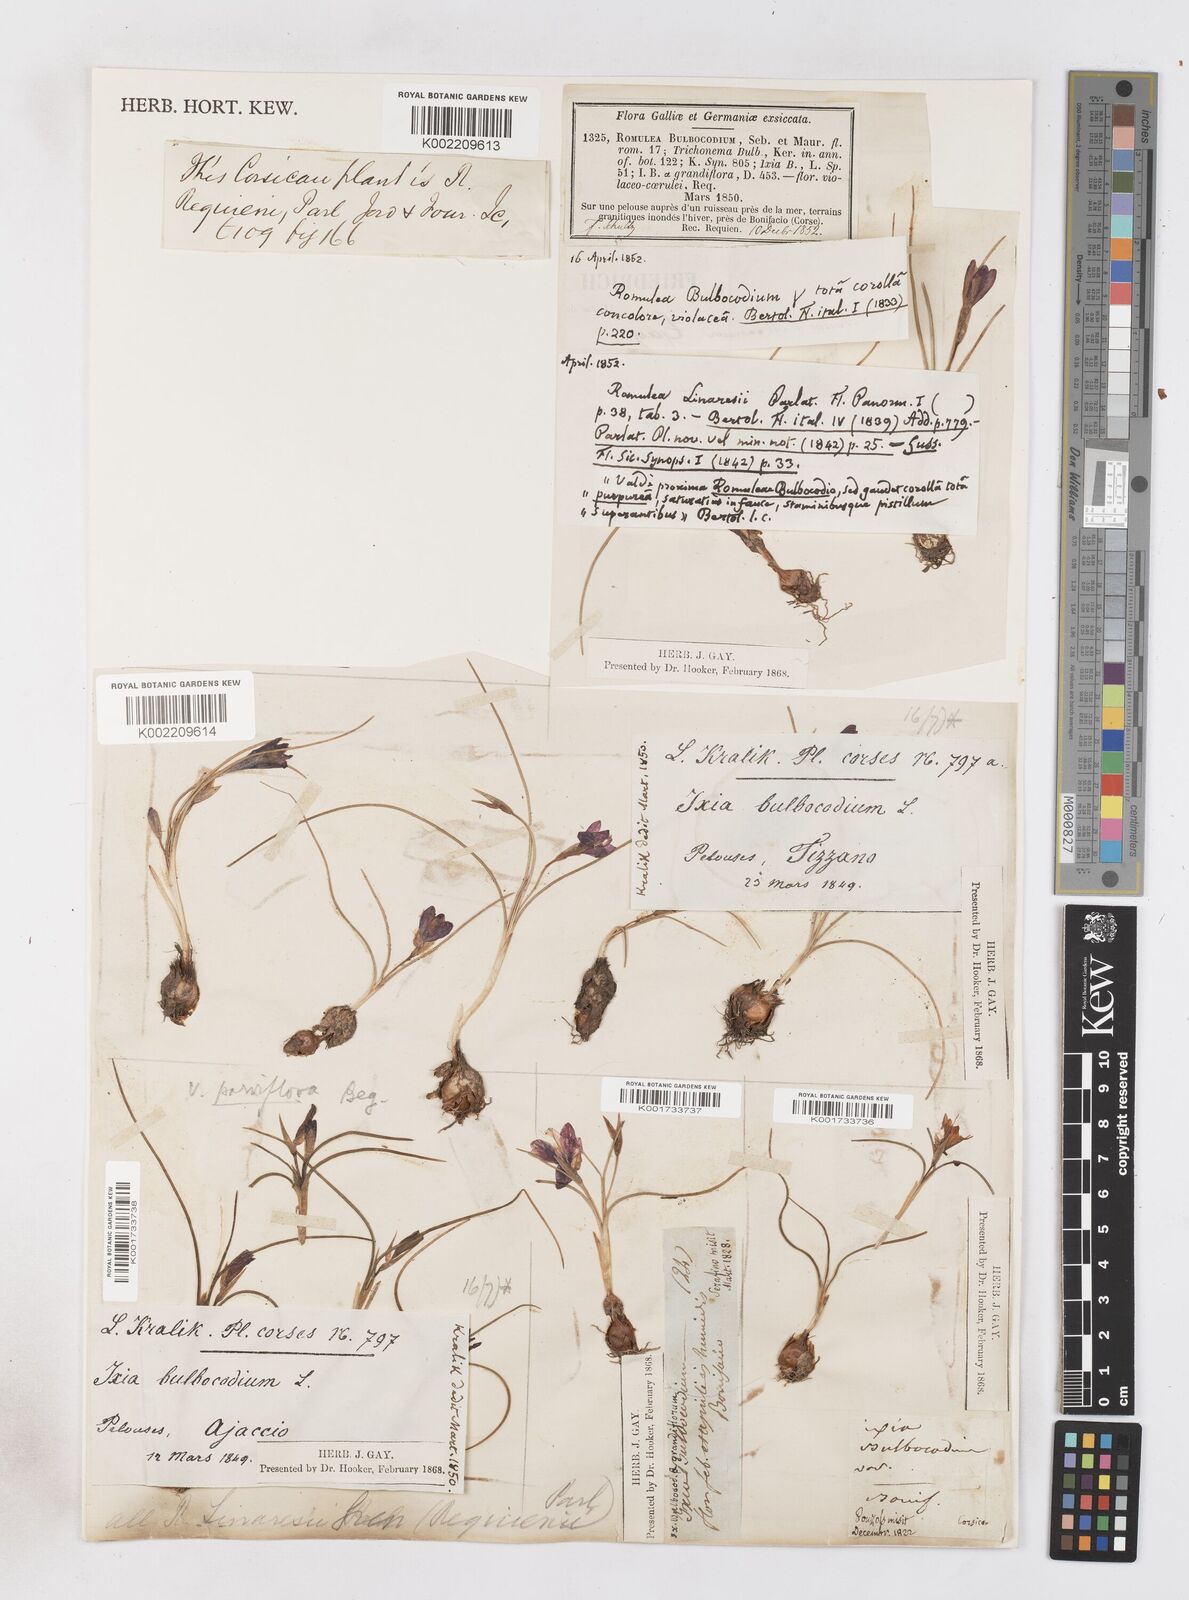 HERB. HORT. KEW.
ROYAL BOTANIC GARDENS KEW
K002209613
This Corsican plant is R.
Requieni, Parl Jord & Four. Ic,
t 109 fig 166
Flora Galliæ et Germaniæ exsiccata.
1325, ROMULEA BULBOCODIUM, Seb. et Maur. fl.
rom. 17; Trichonema Bulb., Ker. in. ann.
of. bot. 122; K. Syn. 805; Ixia B., L. Sp.
51; I. B. α grandiflora, D. 453. — flor. vio-
laceo-cœrulei. Req.
Mars 1850.
Sur une pelouse auprès d'un ruisseau près de la mer, terrains
granitiques inondés l'hiver, près de Bonifacio (Corse).
Rec. Requien. 10 Decbr 1852.
16 April. 1852.
Romulea Bulbocodium γ totâ corollâ
concolore, violaceâ. Bertol. Fl. ital. I (1833)
p. 220.
April. 1852.
Romulea Linaresii Parlat. Fl. Panorm. I ( )
p. 38, tab. 3. — Bertol. Fl. ital. IV (1839) Add. p. 779. —
Parlat. Pl. nov. vel min. not. (1842) p. 25. — Guss.
Fl. Sic. Synops. I (1842) p. 33.
" Valdè proxima Romuleae Bulbocodio, sed gaudet corollâ totâ
" purpureâ, saturatius in fauce, staminibusque pistillum
" superantibus " Bertol. l. c.
HERB. J. GAY.
Presented by Dr. Hooker, February 1868.
ROYAL BOTANIC GARDENS KEW
K002209614
16/77*
L. Kralik. Pl. corses N. 797 a.
Ixia bulbocodium L.
Pelouses, Tizzano
23 Mars 1849.
Kralik dedit Mart. 1850.
HERB. J. GAY.
Presented by Dr. Hooker, February 1868.
v. parviflora Beg.
ROYAL BOTANIC GARDENS KEW
K001733738
ROYAL BOTANIC GARDENS KEW
K001733737
ROYAL BOTANIC GARDENS KEW
K001733736
16/77*
L. Kralik. Pl. corses N. 797
Ixia bulbocodium L.
Pelouses, Ajaccio
12 Mars 1849.
HERB. J. GAY.
Presented by Dr. Hooker, February 1868.
Kralik dedit Mart. 1850.
all R. Linaresii (Requienii Parl)
HERB. J. GAY.
Presented by Dr. Hooker, February 1868.
Ixia bulbocodium
Bonifacio
Serafino misit
Mart. 1828.
HERB. J. GAY.
Presented by Dr. Hooker, February 1868.
ixia
Bulbocodium
var.
Bonif.
Pouzols misit Corsica
Decembr. 1822
Don Williams
M000827
inches
centimetres
Royal Botanic Gardens
Kew
copyright reserved
0 1 2 3 4 5 6 7 8 9 10
cm